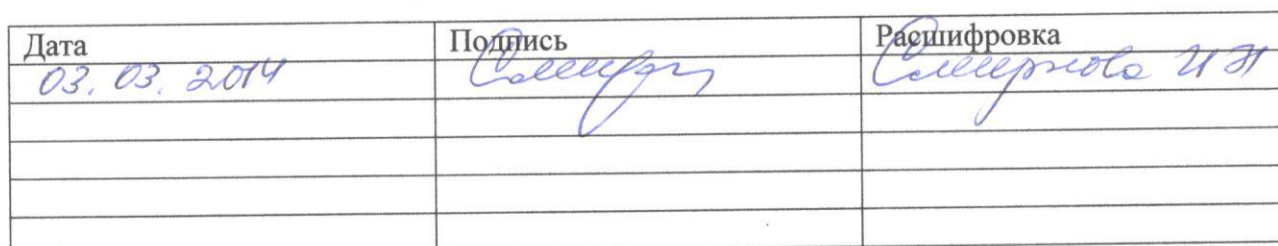 Дата Подпись Расшифровка
03.03.2014 Смирнова И Н